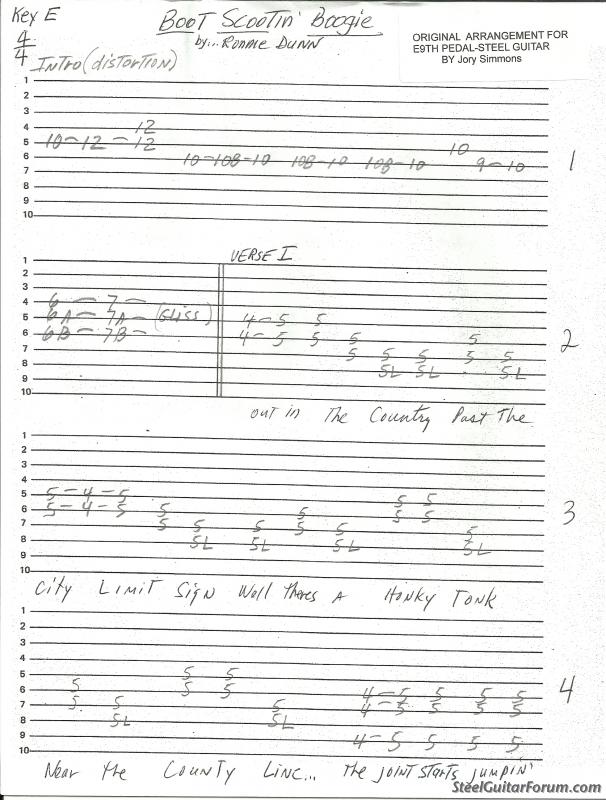 Key E
4/4
Boot Scootin' Boogie
by... Ronnie Dunn
ORIGINAL ARRANGEMENT FOR
E9TH PEDAL-STEEL GUITAR
BY Jory Simmons
Intro (distortion)
1
2
3
4 12
5 10-12-12
6 10-10B-10 10B-10 10B-10 10 9-10
7
8
9
10
1
VERSE I
1
2
3
4 6-7-
5 6A-7A- (Gliss) 4-5 5
6 6B-7B- 4-5 5 5 5
7 5 5 5 5 5
8 5L 5L 5L
9
10
2
out in The Country Past The
1
2
3
4
5 5-4-5 5 5
6 5-4-5 5 5 5 5
7 5 5 5 5 5 5
8 5L 5L 5L 5L
9
10
3
City Limit Sign Well Theres A Honky Tonk
1
2
3
4
5 5 5
6 5 5 5 4-5 5 5 5
7 5 5 5 4-5 5 5 5
8 5L 5L
9 4-5 5 5 5
10
4
Near the County Line... The joint starts jumpin'
SteelGuitarForum.com